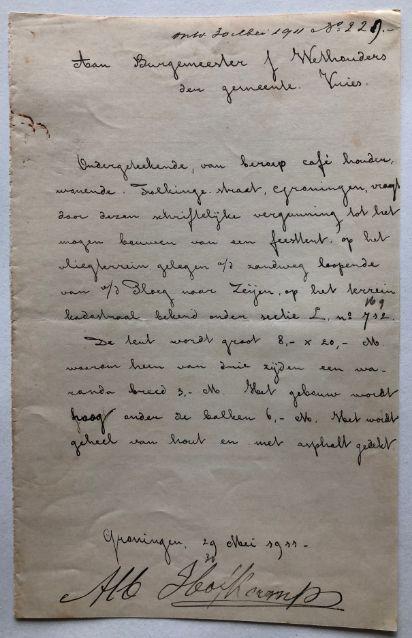 ontv. 30 Mei 1911 No 229.-
Aan Burgemeester & Wethouders
den gemeente. Vries.
Ondergeteekende, van beroep café houder,
wonende. Folkinge straat, Groningen, vragt
door dezen schriftelijke vergunning tot het
mogen bouwen van een feesttent. op het
vliegterrein gelegen a/d zandweg loopende
van a/d Ploeg naar Zeijen, op het terrein
169
kadastraal bekend onder sectie L, no 792.
De tent wordt groot 8,- x 20,- M
waarom heen van drie zijden een wa-
randa breed 3,- M. Het gebouw wordt
hoog onder de balken 6,- M. Het wordt
geheel van hout en met asphalt gedekt
Groningen, 29 Mei 1911-
30